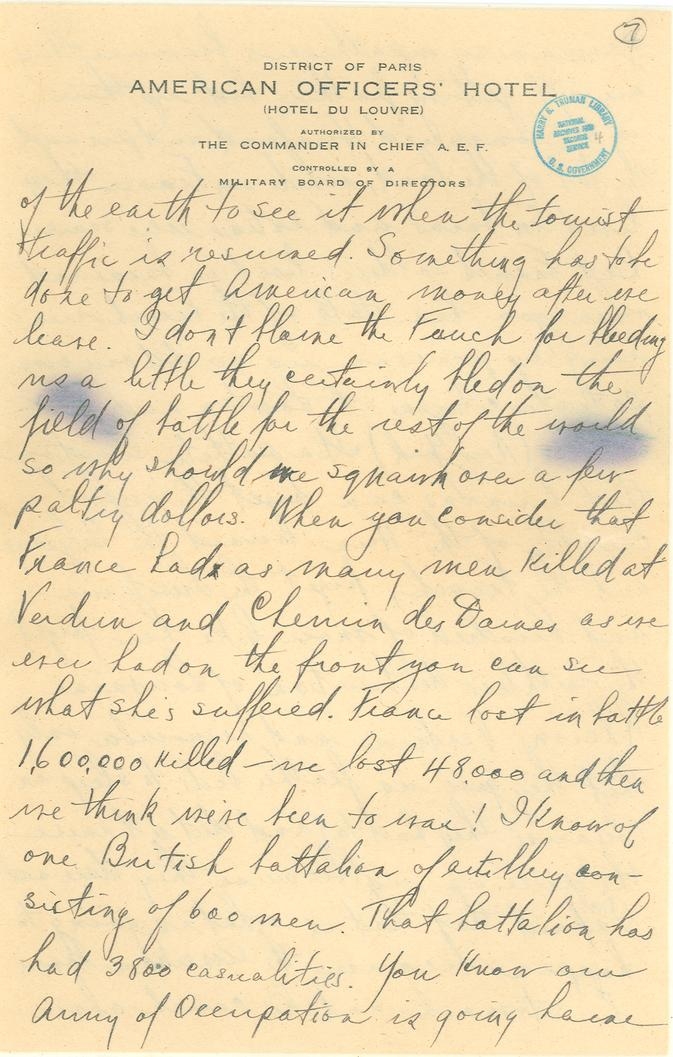 7
DISTRICT OF PARIS
AMERICAN OFFICERS' HOTEL
(HOTEL DU LOUVRE)
AUTHORIZED BY
THE COMMANDER IN CHIEF A. E. F.
CONTROLLED BY A
MILITARY BOARD OF DIRECTORS
HARRY S. TRUMAN LIBRARY
NATIONAL
ARCHIVES AND
RECORDS
SERVICE
4
U. S. GOVERNMENT
of the earth to see it when the tourist
traffic is resumed. Something has to be
done to get American money after we
leave. I don't blame the French for bleeding
us a little they certainly bled on the
field of battle for the rest of the world
so why should we squawk over a few
paltry dollars. When you consider that
France had as many men killed at
Verdun and Chemin des Dames as we
ever had on the front you can see
what she's suffered. France lost in battle
1,600,000 killed – we lost 48,000 and then
we think we've been to war! I know of
one British battalion of artillery con-
sisting of 600 men. That battalion has
had 3800 casualities. You know our
Army of Occupation is going home